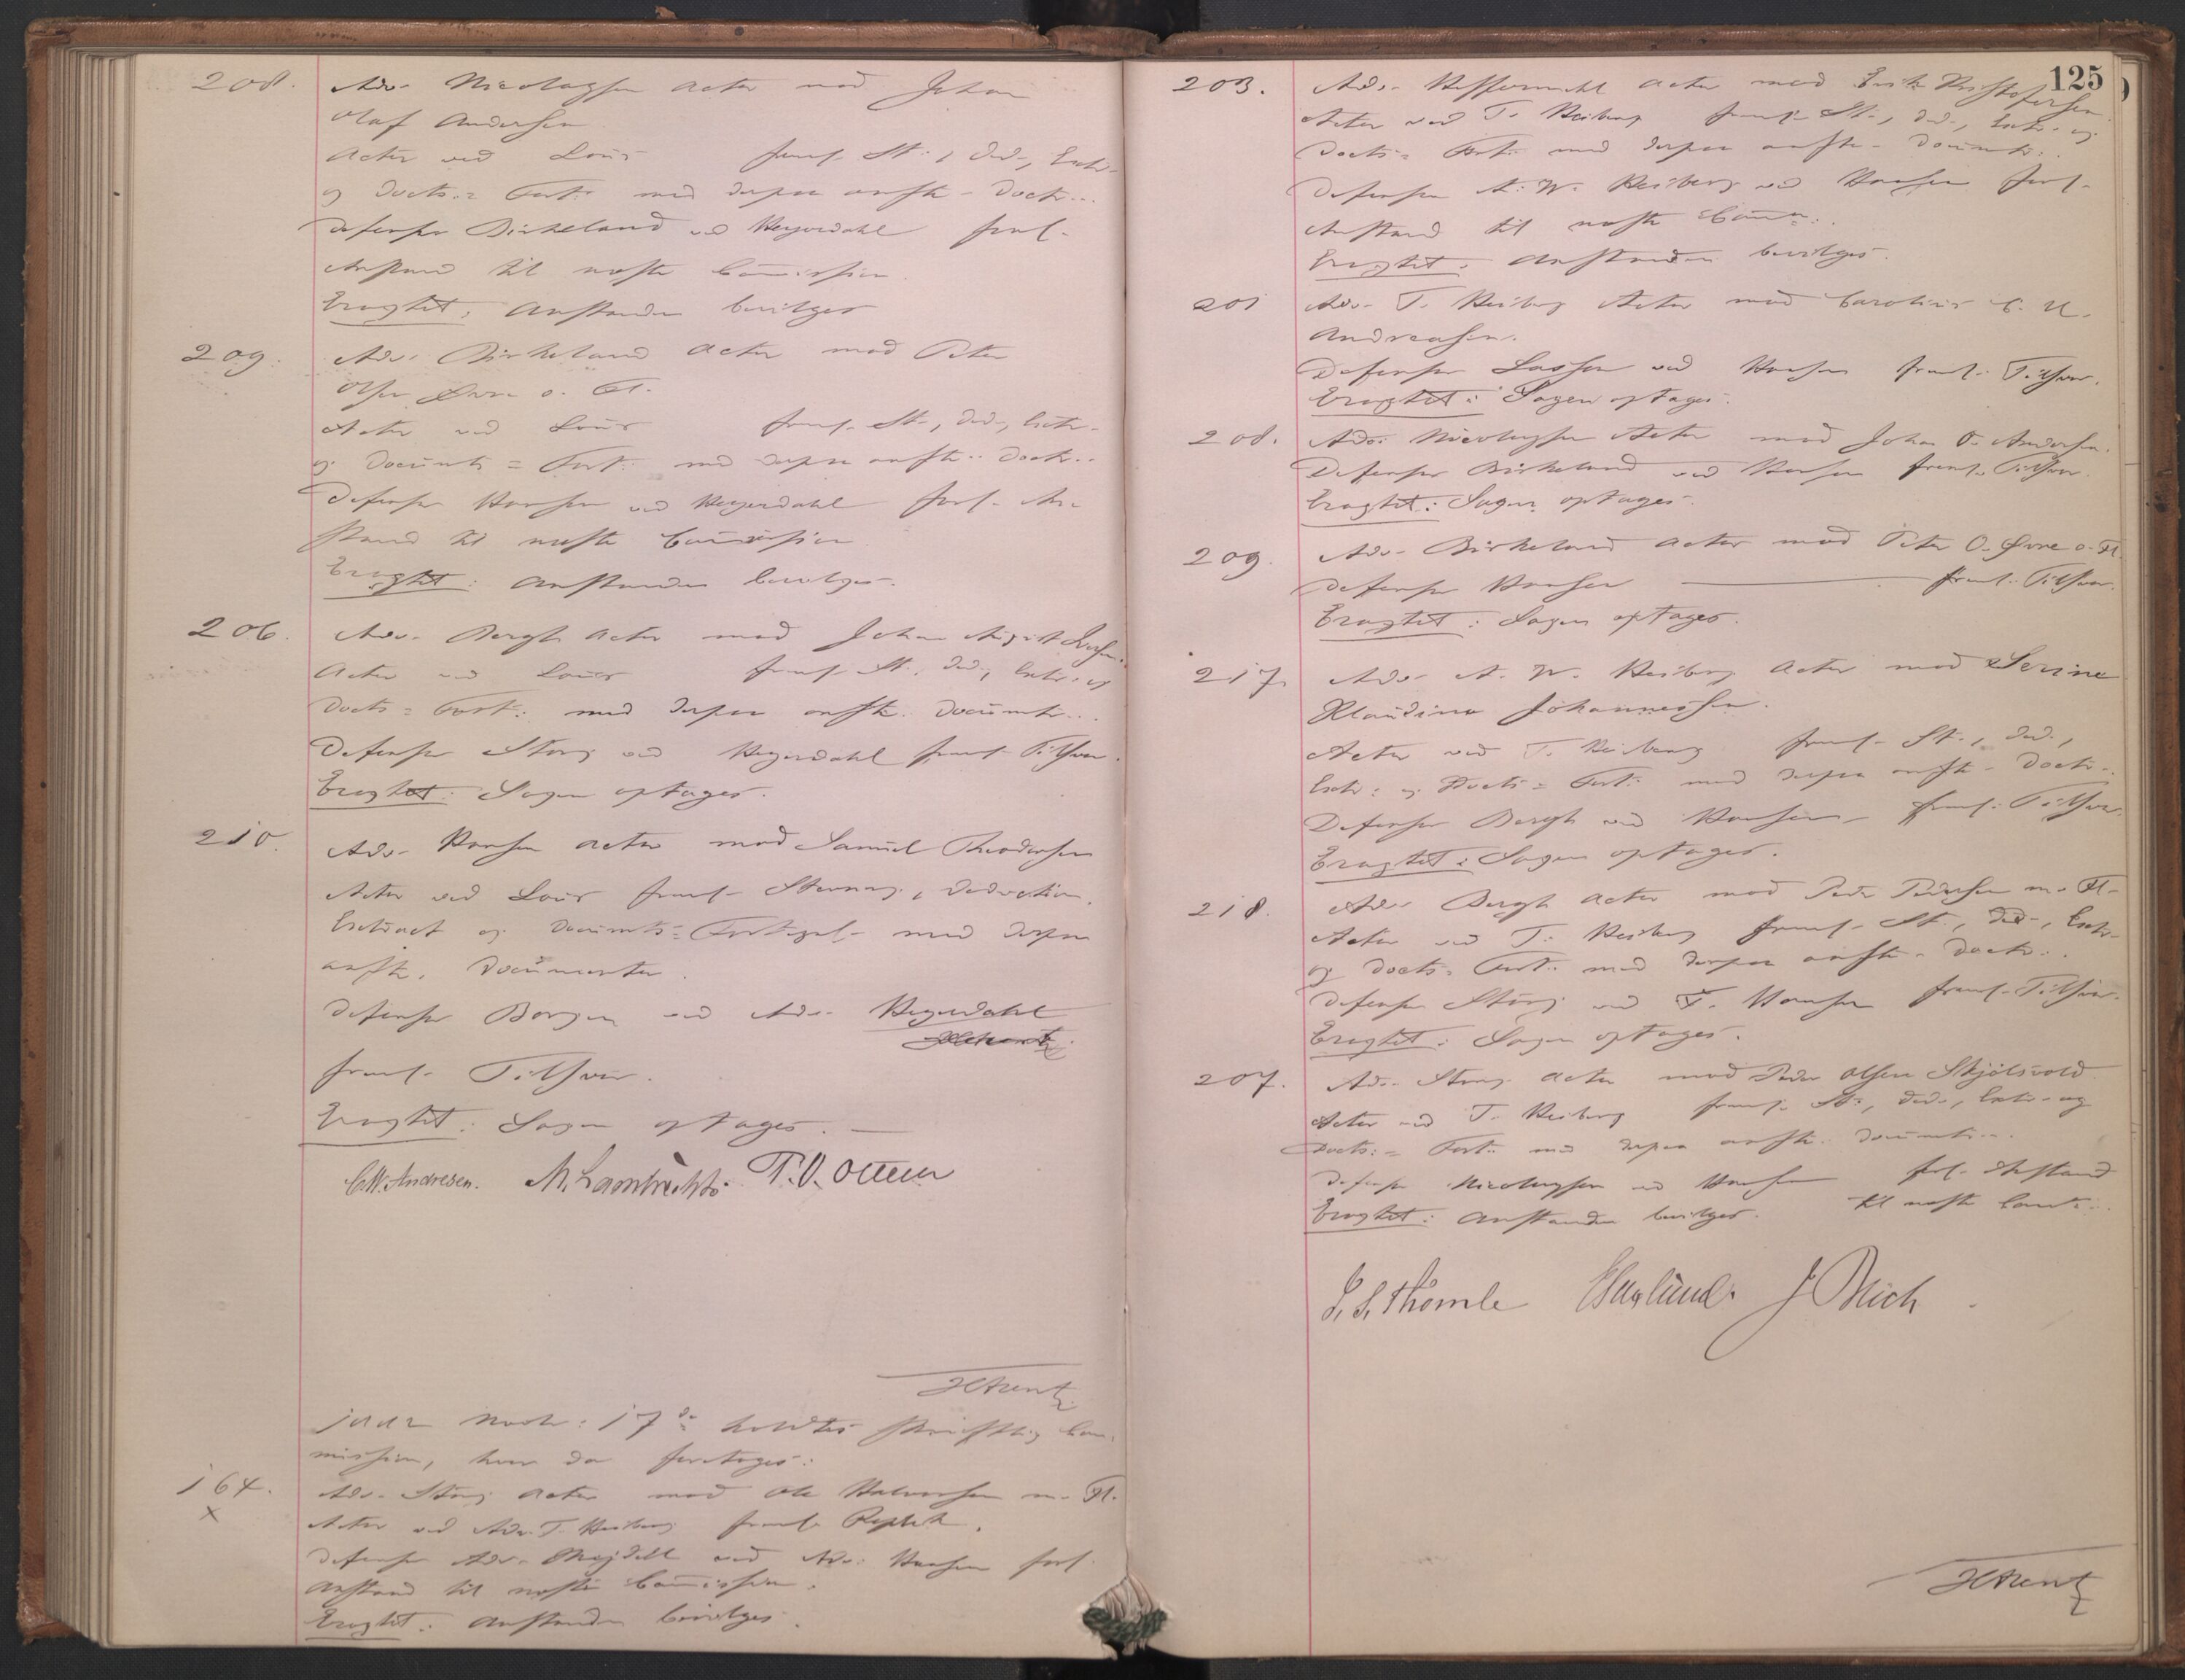 208. Adv. Nicolaysen Actor mod Johan
Olaf Andersen
Actor ved Lous freml. St., Ded., Extr.
og Docts.= Fort. med derpaa anførte Doctr..
Defensor Birkeland ved Heyerdahl forl.
Anstand til næste Commission.
Eragtet: Anstanden bevilges
209. Adv. Birkeland Actor mod Peter
Olsen Øvre o. Fl.
Actor ved Lous freml. St., Ded., Extr.
og Documts = Fort. med derpaa anførte Doctr..
Defensor Hansen ved Heyerdahl forl. An-
stand til næste Commission
Eragtet: Anstanden bevilges.
206. Adv. Bergh Actor mod Johan August
Actor ved Lous freml. St., Ded., Extr. og
Docts = Fort. med derpaa anførte Documtr...
Defensor Stang ved Heyerdahl freml. Tilsvar.
Eragtet: Sagen optages.
210. Adv. Hansen Actor mod Samuel Theodorsen
Actor ved Lous freml. Stevning, Deduction,
Extract og Documts = Fortegn. med derpaa
anførte Documenter.
Defensor Borgen ved Adv. Heyerdahl
freml. Tilsvar.
Eragtet: Sagen optages. —
C.W. Andresen. M. Lambrechts. T.O.
HArentz
1882 Novbr. 17de holdtes skriftlig Com-
mission, hvor da foretages:
164. Adv. Stang Actor mod Ole Halvorsen m. Fl.
x
Actor ved Adv. T. Heiberg freml. Replik.
Defensor Adv. ved Adv. Hansen forl.
Anstand til næste Commission.
Eragtet: Anstanden bevilges.
125
203. Adv. Hesselberg Actor mod Erik Kristofersen
Actor ved T. Heiberg freml. St., Ded., Extr. og
Docts = Fort. med derpaa anførte Documtr..
Defensor A. W. Heiberg ved Hansen forl.
Anstand til næste Comm..
Eragtet: Anstanden bevilges.
201 Adv. T. Heiberg Actor mod Carolius C. U.
Andreasen.
Defensor Lassen ved Hansen freml. Tilsvar.
Eragtet: Sagen optages.
208. Adv. Nicolaysen Actor mod Johan O. Andersen.
Defensor Birkeland ved Hansen freml. Tilsvar.
Eragtet: Sagen optages.
209. Adv. Birkeland Actor mod Peter O. Øvre o. Fl.
Defensor Hansen — freml. Tilsvar.
Eragtet: Sagen optages.
217. Adv. A. W. Heiberg Actor mod Serine
Klaudine Johannessen.
Actor ved T. Heiberg freml. St., Ded.,
Extr. og Docts = Fort. med derpaa anførte Doctr..
Defensor Bergh ved Hansen freml. Tilsvar.
Eragtet: Sagen optages.
218. Adv. Bergh Actor mod Peder Pedersen m. Fl.
Actor ved T. Heiberg freml. St., Ded., Extr.
og Docts = Fort. med derpaa anførte Doctr..
Defensor Stang ved F. Hansen freml. Tilsvar.
Eragtet: Sagen optages.
207. Adv. Stang Actor mod Peder Olsen Skjölsvold
Actor ved T. Heiberg freml. St., Ded., Extr. og
Docts = Fort. med derpaa anførte Documtr...
Defensor Nicolaysen ved Hansen forl. Anstand
Eragtet: Anstanden bevilges. til næste Comm..
G. S. Thomle Haslund. J Reich
HArentz